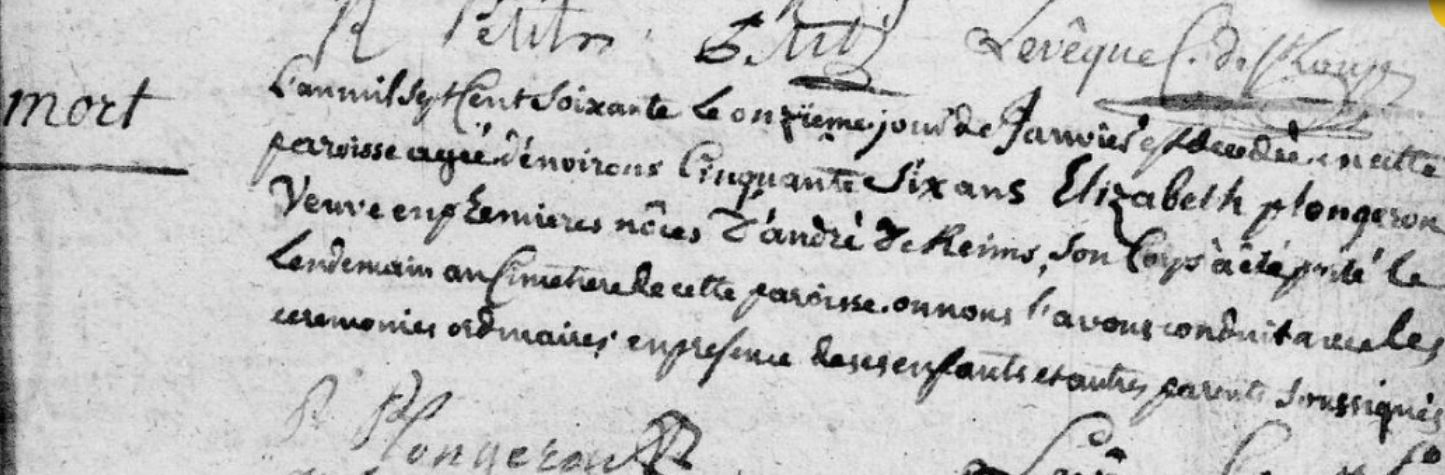 R Petit
Levêque C. de St Loup
mort
L'an mil sept Cent soixante le onzïeme jour de Janvier est decedée en cette
paroisse agée d'environs Cinquante Six ans Elizabeth plongeron
Veuve en premieres nôces d'andré de Reims, Son Corps à été porté le
Lendemain au Cimetiere de cette paroisse. ou nous l'avons conduit avec les
ceremonies ordinaires en presence de ses enfants et autres parents soussignés
R Plongeron